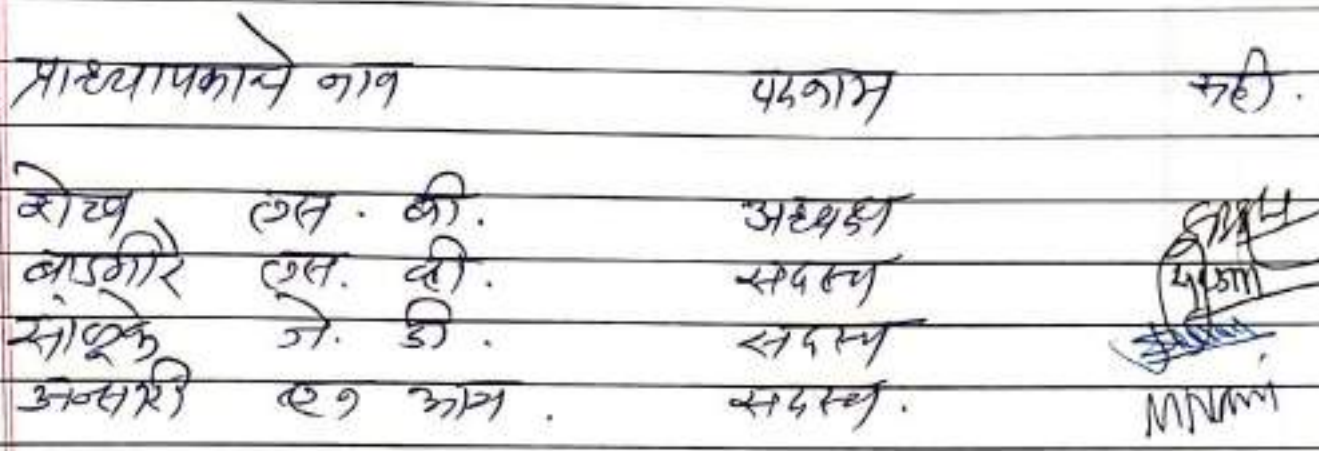 प्राध्यापकाचे नाव पदनाम सही.
शेख एस. बी. अध्यक्ष
बाडगीरे एस. व्ही. सदस्य
सोळुंके जे. डी. सदस्य
अन्सारी एन आय. सदस्य.